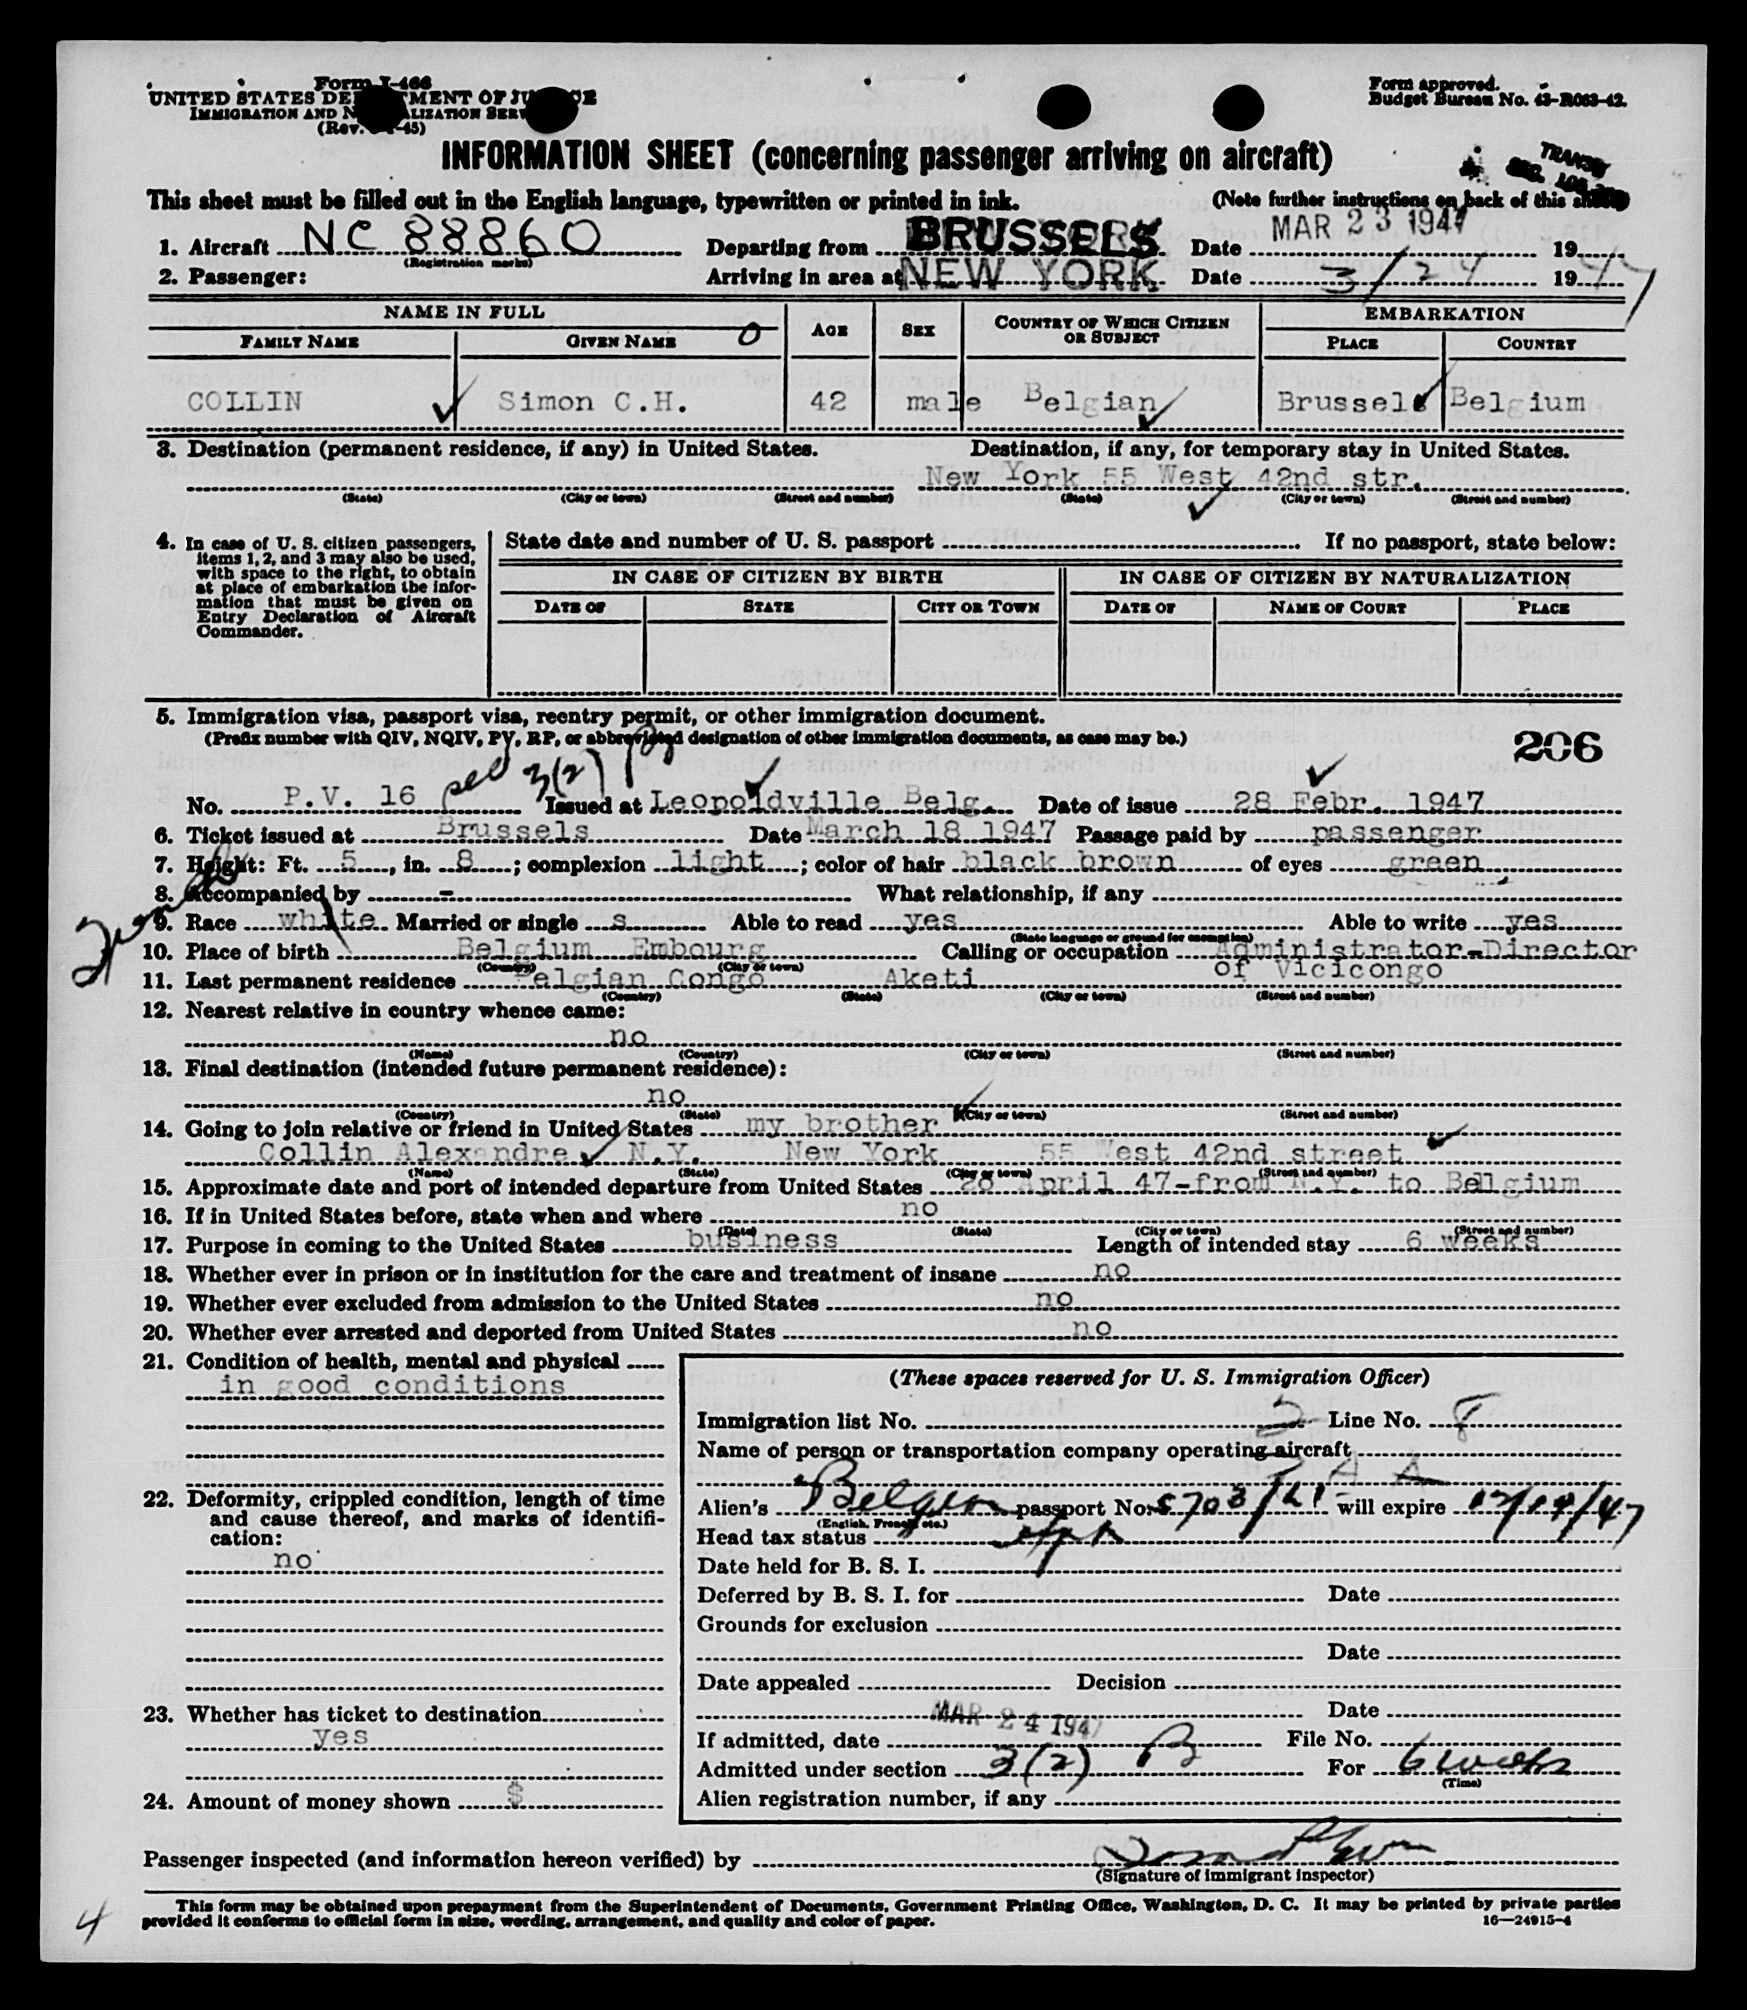 Form I-466
UNITED STATES DEPARTMENT OF JUSTICE
IMMIGRATION AND NATURALIZATION SERVICE
(Rev. -45)
Form approved.
Budget Bureau No. 43-R063-42.
INFORMATION SHEET (concerning passenger arriving on aircraft)
TRANSIT
This sheet must be filled out in the English language, typewritten or printed in ink. (Note further instructions on back of this sheet)
1. Aircraft NC 88860 Departing from BRUSSELS Date MAR 23 1947 19
(Registration marks)
2. Passenger: Arriving in area at NEW YORK Date 3/24 1947
NAME IN FULL
FAMILY NAME GIVEN NAME 0 AGE SEX COUNTRY OF WHICH CITIZEN OR SUBJECT EMBARKATION PLACE COUNTRY
COLLIN Simon C.H. 42 male Belgian Brussels Belgium
3. Destination (permanent residence, if any) in United States. Destination, if any, for temporary stay in United States.
New York 55 West 42nd str.
(State) (City or town) (Street and number) (State) (City or town) (Street and number)
4. In case of U. S. citizen passengers, items 1, 2, and 3 may also be used, with space to the right, to obtain at place of embarkation the information that must be given on Entry Declaration of Aircraft Commander.
State date and number of U. S. passport If no passport, state below:
IN CASE OF CITIZEN BY BIRTH IN CASE OF CITIZEN BY NATURALIZATION
DATE OF STATE CITY OR TOWN DATE OF NAME OF COURT PLACE
5. Immigration visa, passport visa, reentry permit, or other immigration document.
(Prefix number with QIV, NQIV, PV, RP, or abbreviated designation of other immigration documents, as case may be.)
206
sec 3(2)
No. P.V. 16 Issued at Leopoldville Belg. Date of issue 28 Febr. 1947
6. Ticket issued at Brussels Date March 18 1947 Passage paid by passenger
7. Height: Ft. 5, in. 8; complexion light; color of hair black brown of eyes green
8. Accompanied by - What relationship, if any
9. Race white Married or single s Able to read yes Able to write yes
(State language or ground for exemption)
10. Place of birth Belgium Embourg Calling or occupation Administrator-Director
(Country) (City or town) of Vicicongo
11. Last permanent residence Belgian Congo Aketi
(Country) (State) (City or town) (Street and number)
12. Nearest relative in country whence came:
no
(Name) (Country) (City or town) (Street and number)
13. Final destination (intended future permanent residence):
no
(Country) (State) (City or town) (Street and number)
14. Going to join relative or friend in United States my brother
Collin Alexandre N.Y. New York 55 West 42nd street
(Name) (State) (City or town) (Street and number)
15. Approximate date and port of intended departure from United States 28 April 47-from N.Y. to Belgium
16. If in United States before, state when and where no
(Date) (State) (City or town) (Street and number)
17. Purpose in coming to the United States business Length of intended stay 6 weeks
18. Whether ever in prison or in institution for the care and treatment of insane no
19. Whether ever excluded from admission to the United States no
20. Whether ever arrested and deported from United States no
21. Condition of health, mental and physical
in good conditions
22. Deformity, crippled condition, length of time and cause thereof, and marks of identification:
no
23. Whether has ticket to destination
yes
24. Amount of money shown $
(These spaces reserved for U. S. Immigration Officer)
Immigration list No. Line No. 8
Name of person or transportation company operating aircraft
Alien's Belgian passport No. will expire 12/14/47
(English, French, etc.)
Head tax status
Date held for B. S. I.
Deferred by B. S. I. for Date
Grounds for exclusion
Date
Date appealed Decision
Date
If admitted, date MAR 24 1947 File No.
Admitted under section 3(2) B For 6 weeks
(Time)
Alien registration number, if any
Passenger inspected (and information hereon verified) by
(Signature of immigrant inspector)
This form may be obtained upon prepayment from the Superintendent of Documents, Government Printing Office, Washington, D. C. It may be printed by private parties
provided it conforms to official form in size, wording, arrangement, and quality and color of paper. 16—24915-4
4